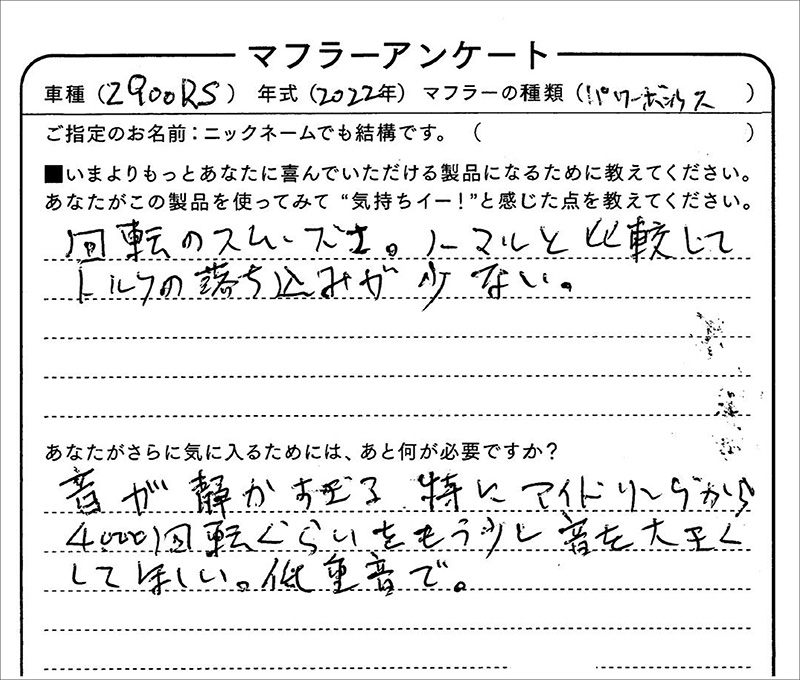 マフラーアンケート
車種(Z900RS) 年式(2022年) マフラーの種類(パワーボックス)
ご指定のお名前:ニックネームでも結構です。( )
■いまよりもっとあなたに喜んでいただける製品になるために教えてください。
あなたがこの製品を使ってみて“気持ちイー!”と感じた点を教えてください。
回転のスムーズさ。ノーマルと比較して
トルクの落ち込みが少ない。
あなたがさらに気に入るためには、あと何が必要ですか?
音が静かすぎる 特にアイドリングから
4000回転ぐらいをもう少し音を大きく
してほしい。低重音で。